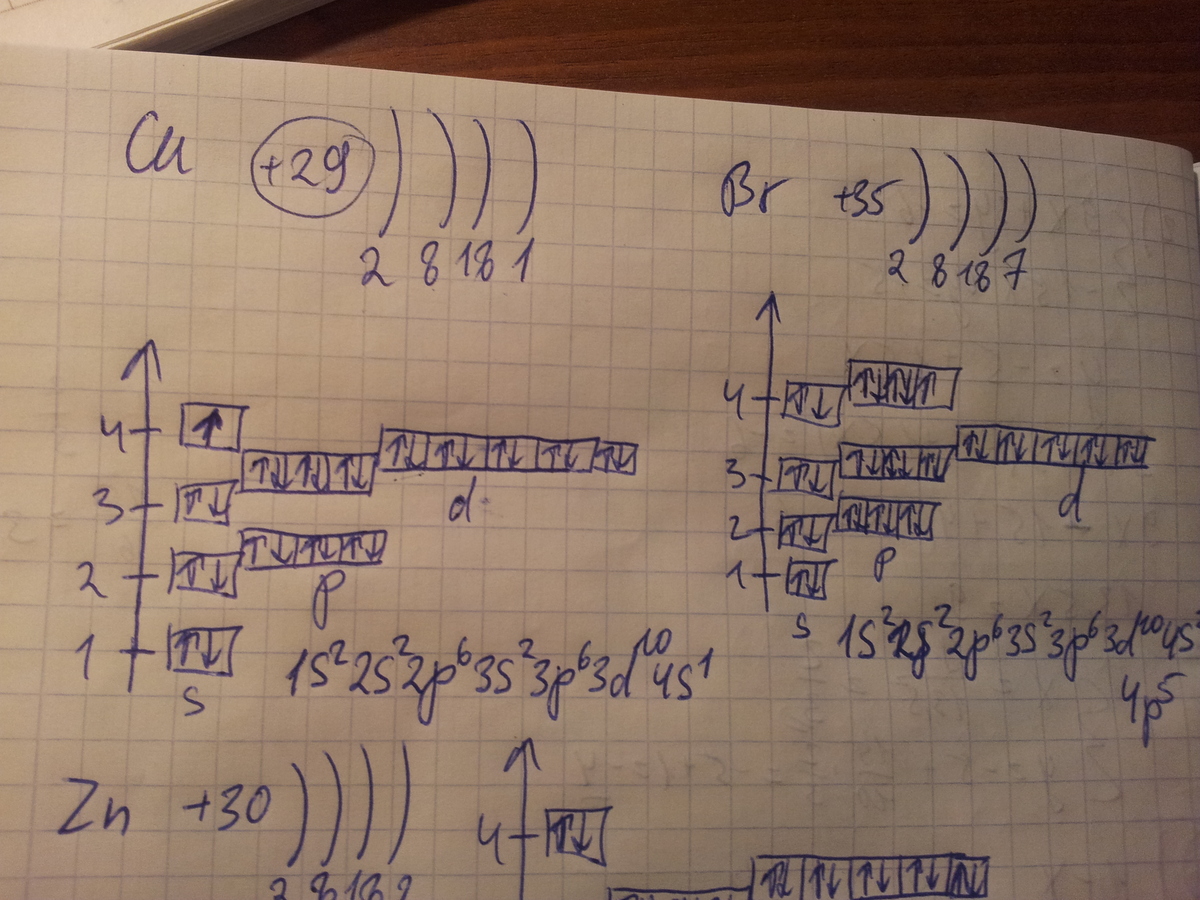 Cu +29
2 8 18 1
4
3
d
2
p
1
s
1s²2s²2p⁶3s²3p⁶3d¹⁰4s¹
Br +35
2 8 18 7
4
3
d
2
p
1
s
1s²2s²2p⁶3s²3p⁶3d¹⁰4s²
4p⁵
Zn +30
2 8 18 2
4